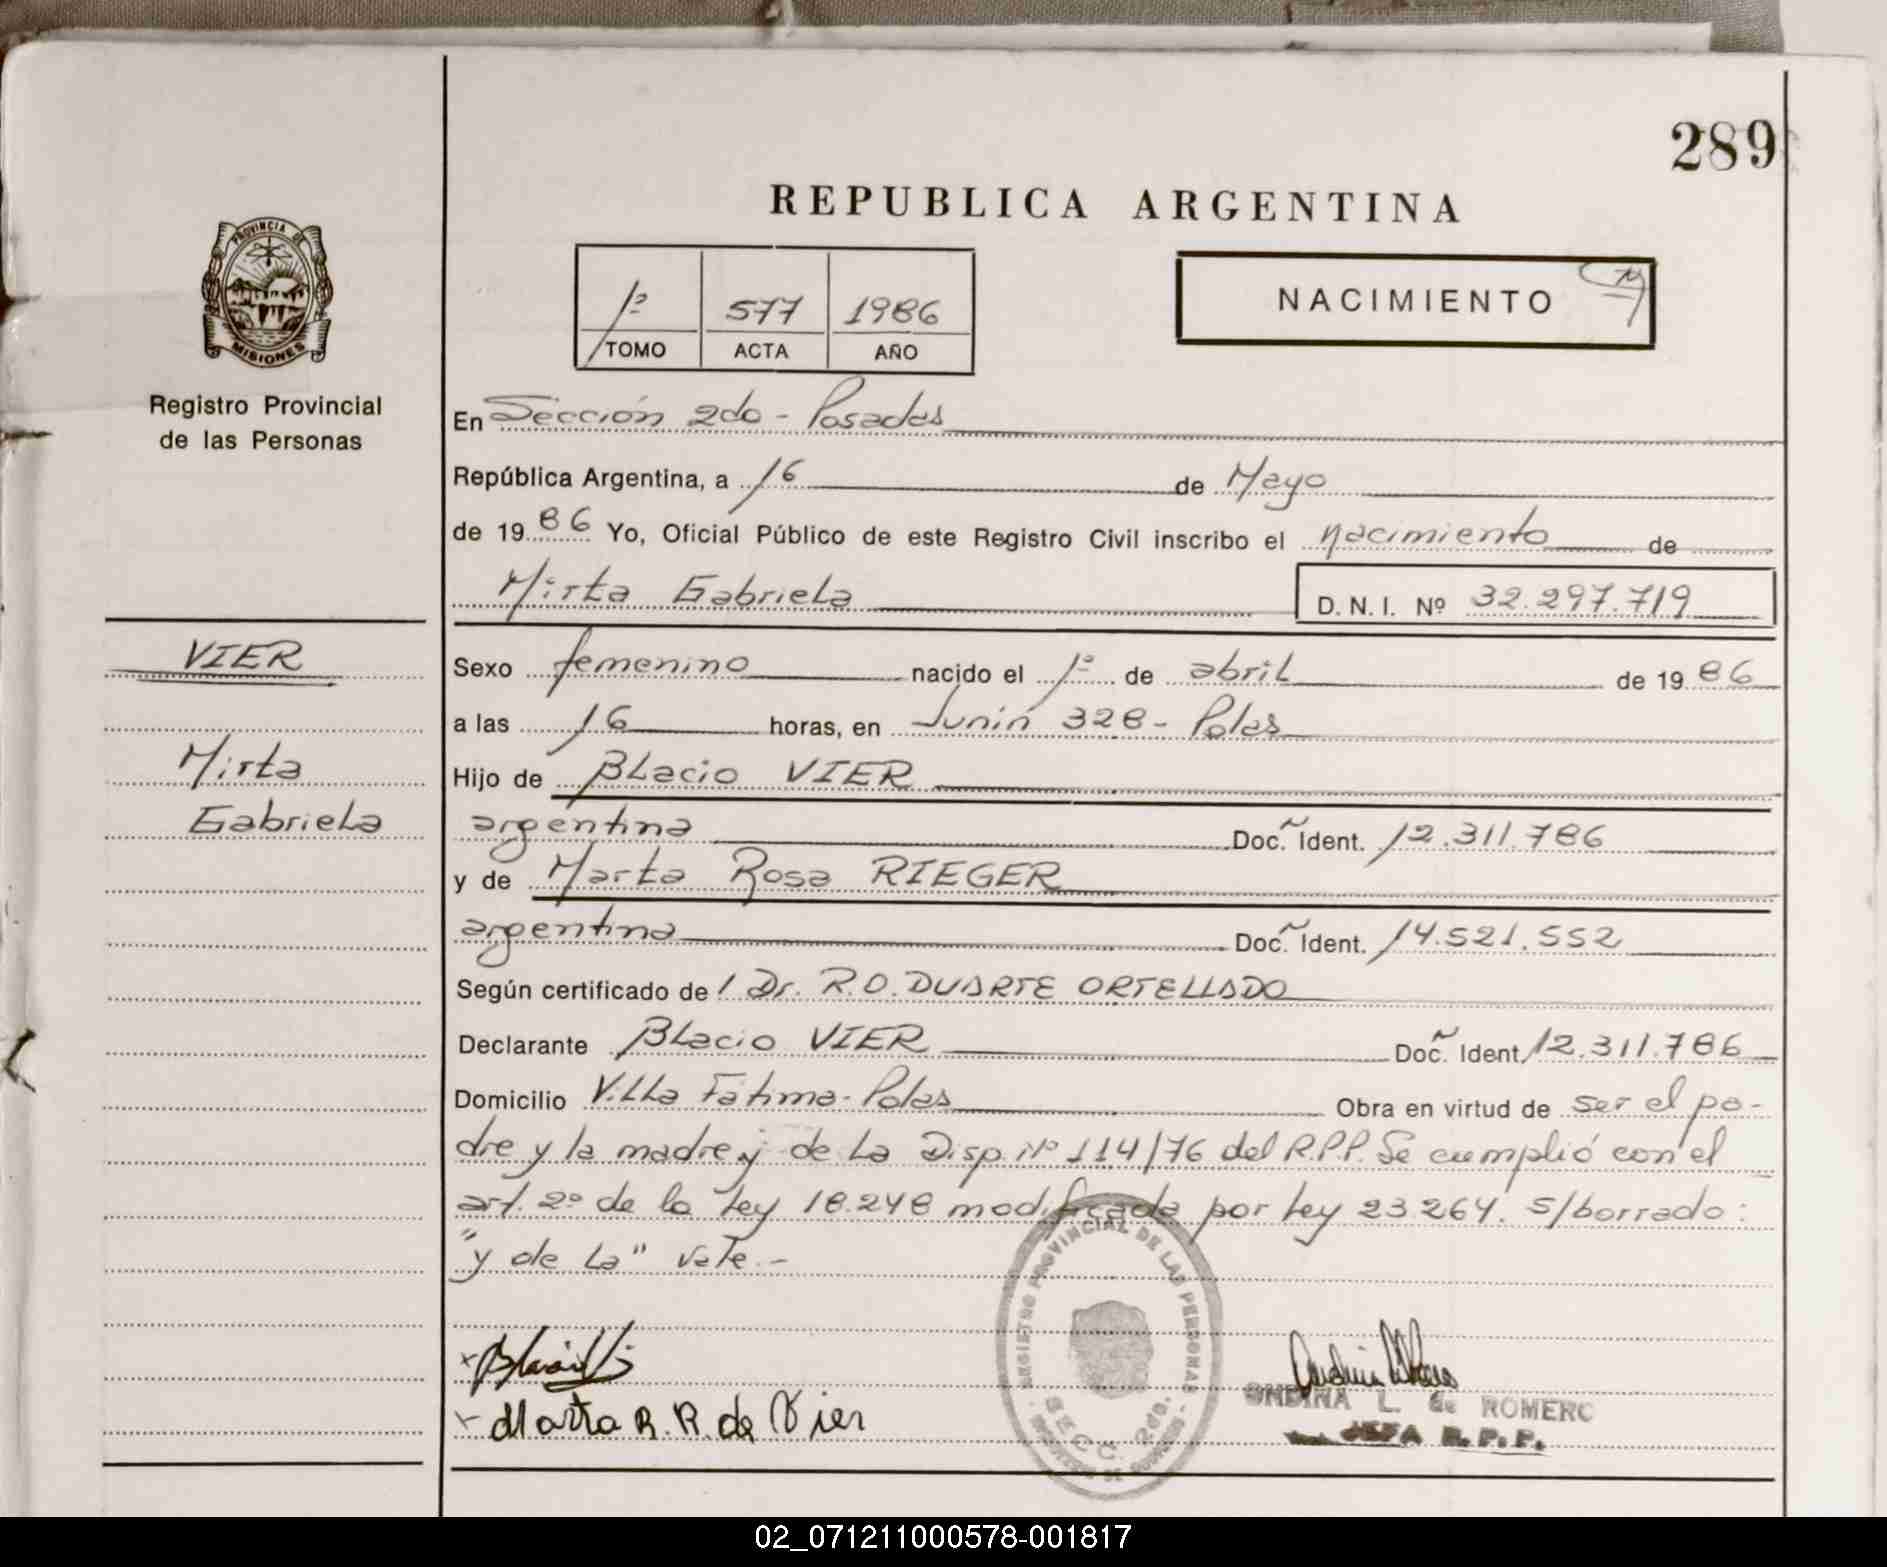 289
REPUBLICA ARGENTINA
PROVINCIA DE
MISIONES
Registro Provincial
de las Personas
1º 577 1986
TOMO ACTA AÑO
NACIMIENTO
En Sección 2da - Posadas
República Argentina, a 16 de Mayo
de 1986 Yo, Oficial Público de este Registro Civil inscribo el nacimiento de
Mirta Gabriela D. N. I. Nº 32.297.719
VIER
Mirta
Gabriela
Sexo femenino nacido el 1º de abril de 1986
a las 16 horas, en Junín 328 - Pdas
Hijo de BLacio VIER
argentina Doc. Ident. 12.311.786
y de Marta Rosa RIEGER
argentina Doc. Ident. 14.521.552
Según certificado de l Dr. R.O. DUARTE ORTELLADO
Declarante BLacio VIER Doc. Ident. 12.311.786
Domicilio Villa Fátima - Pdas Obra en virtud de ser el pa-
dre y la madre y de la Disp. Nº 114/76 del R.P.P. Se cumplió con el
art. 2º de la Ley 18.248 modificada por Ley 23.264. S/borrado:
"y de la" Vale.-
REGISTRO PROVINCIAL DE LAS PERSONAS
SECC. 2da.
Marta R. R. de Vier
ONDINA L. de ROMERO
JEFA R.P.P.
02_071211000578-001817